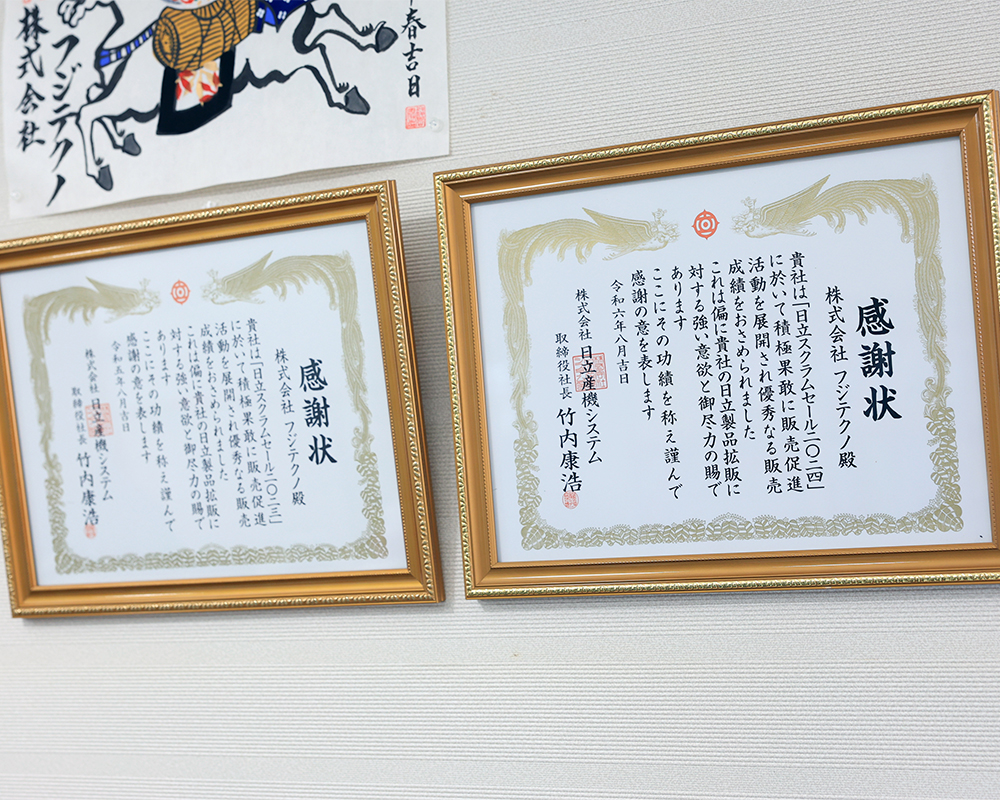 春吉日
株式会社
フジテクノ
感謝状
株式会社 フジテクノ殿
貴社は「日立スクラムセール二〇二四」
に於いて積極果敢に販売促進
活動を展開され優秀なる販売
成績をおさめられました
これは偏に貴社の日立製品拡販に
対する強い意欲と御尽力の賜で
あります
ここにその功績を称え謹んで
感謝の意を表します
令和六年八月吉日
株式会社 日立産機システム
取締役社長 竹内康浩
感謝状
株式会社 フジテクノ殿
貴社は「日立スクラムセール二〇二三」
に於いて積極果敢に販売促進
活動を展開され優秀なる販売
成績をおさめられました
これは偏に貴社の日立製品拡販に
対する強い意欲と御尽力の賜で
あります
ここにその功績を称え謹んで
感謝の意を表します
令和五年八月吉日
株式会社 日立産機システム
取締役社長 竹内康浩